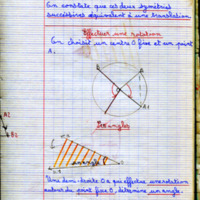 On constate que ces deux symétries
successives équivalent à une translation.
Effectuer une rotation
On choisit un centre O fixe et un point
A.
A
B
O
A1
B1
Les angles
angle
Une demi-droite O x qui effectue une rotation
autour du point fixe O, détermine un angle.